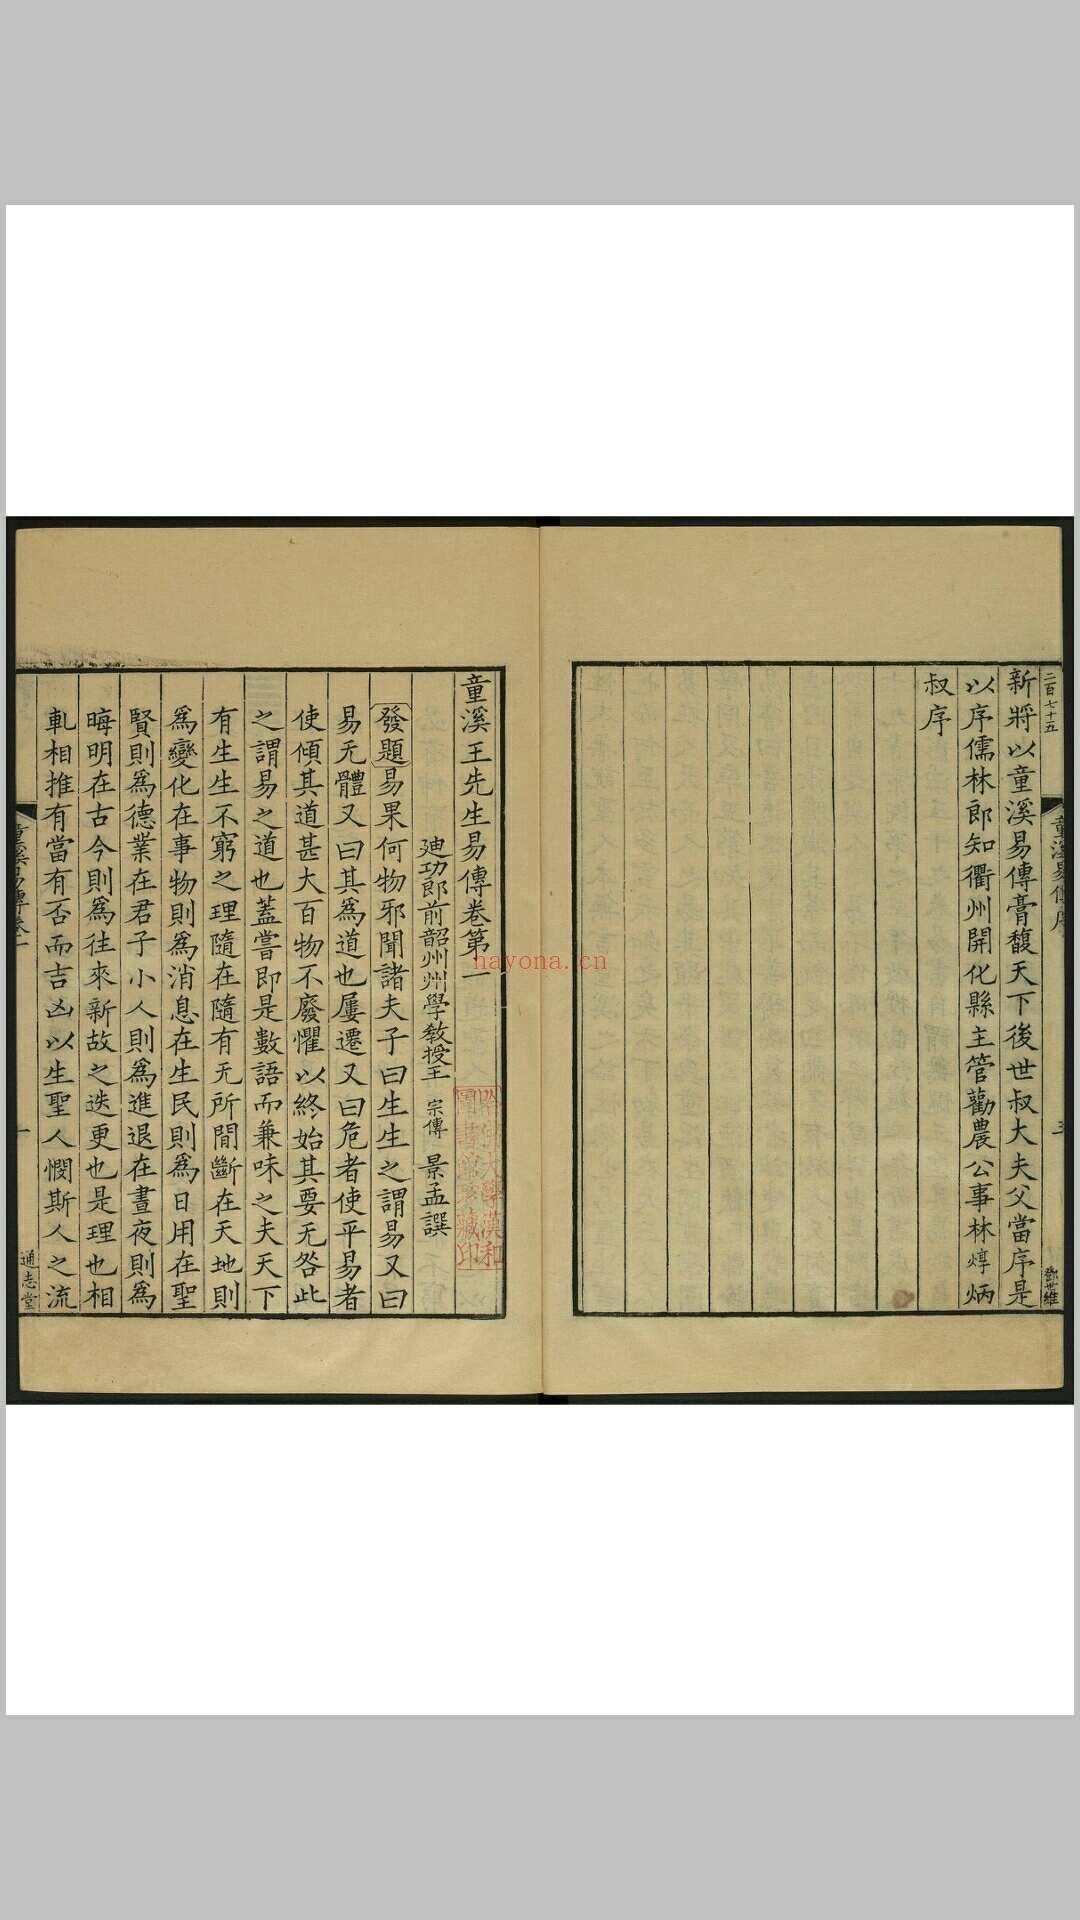 二百七十五
新將以童溪易傳膏馥天下後世叔大夫父當序是
以序儒林郎知衢州開化縣主管勸農公事林焞炳
叔序
童溪易傳序
三
鄧世維
童溪王先生易傳卷第一
廸功郎前韶州州學教授王 宗傳 景孟 譔
發題易果何物邪聞諸夫子曰生生之謂易又曰
易无體又曰其為道也屢遷又曰危者使平易者
使傾其道甚大百物不廢懼以終始其要无咎此
之謂易之道也蓋嘗即是數語而兼味之夫天下
有生生不窮之理隨在隨有无所間斷在天地則
為變化在事物則為消息在生民則為日用在聖
賢則為德業在君子小人則為進退在晝夜則為
晦明在古今則為往來新故之迭更也是理也相
軋相推有當有否而吉凶以生聖人憫斯人之流
童溪易傳卷一
一
通志堂
哈佛大學漢和
圖書館珍藏印
nayona.cn